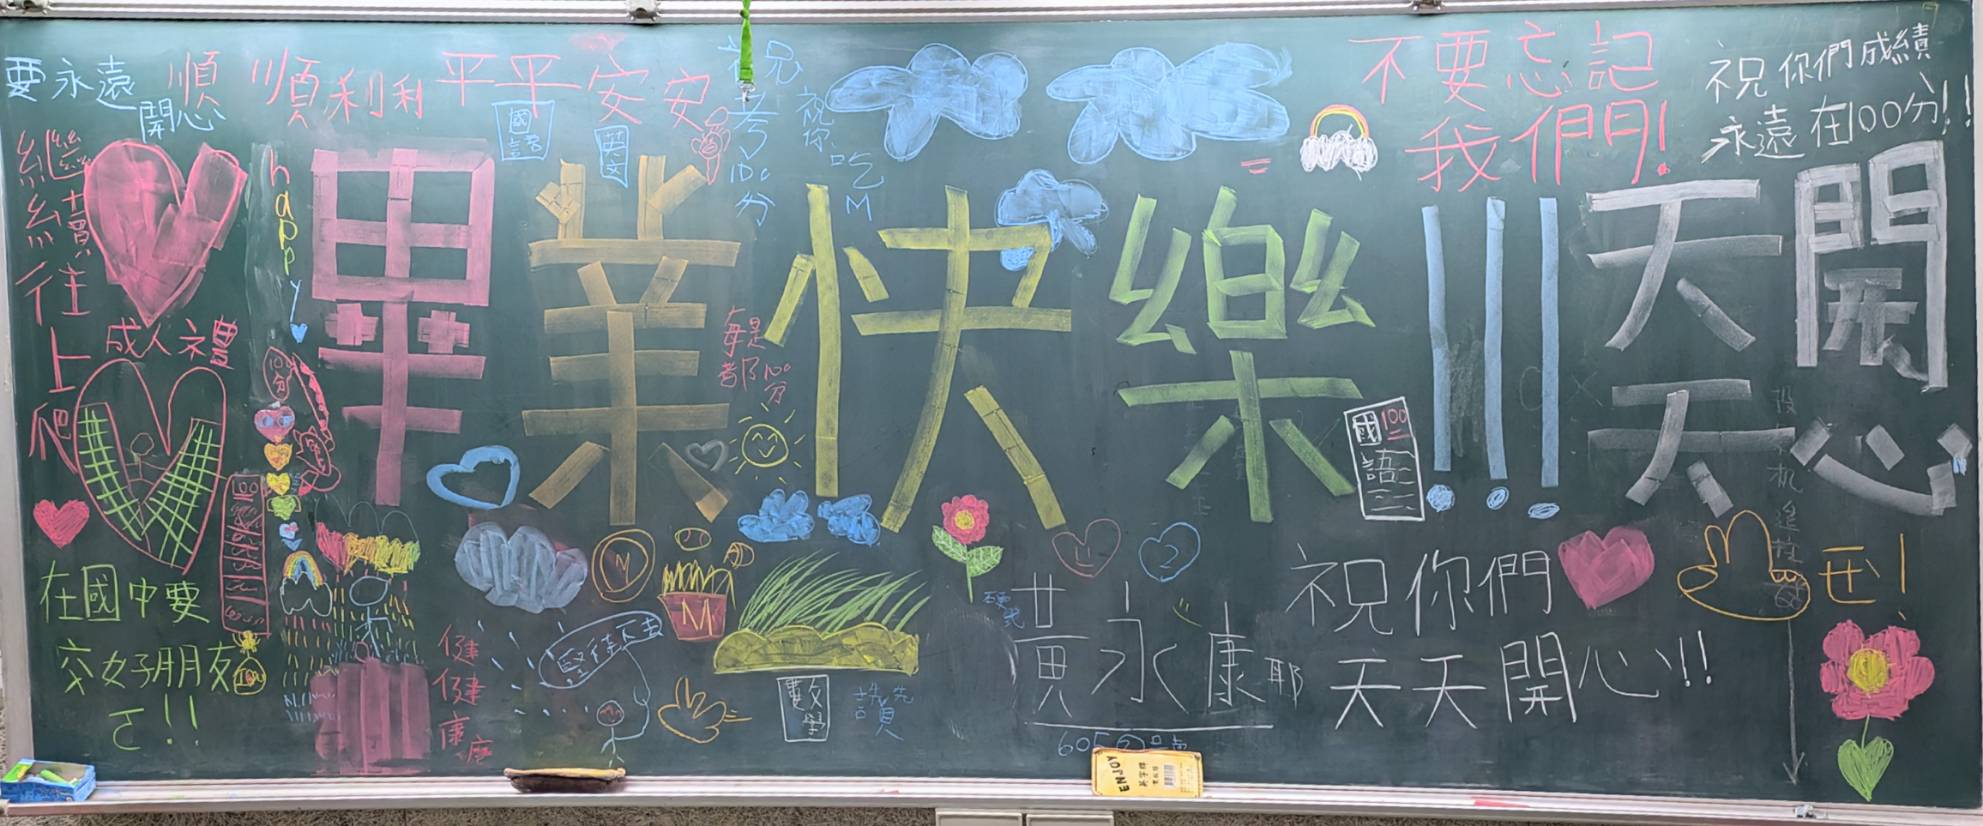 要永遠
開心
順順利利平平安安
祝考100分
祝你吃M
不要忘記
我們!
祝你們成績
永遠在100分!!
繼續往上爬
happy
國語
英文
畢業快樂!!!
天天
開心
成人禮
每是都100分
100分
國語
100
在國中要
交好朋友
ㄛ!!
100
M
M
堅持下去
健健康康
數學
讚
黃永康耶
605
祝你們
天天開心!!
ㄝ!
ENJOY